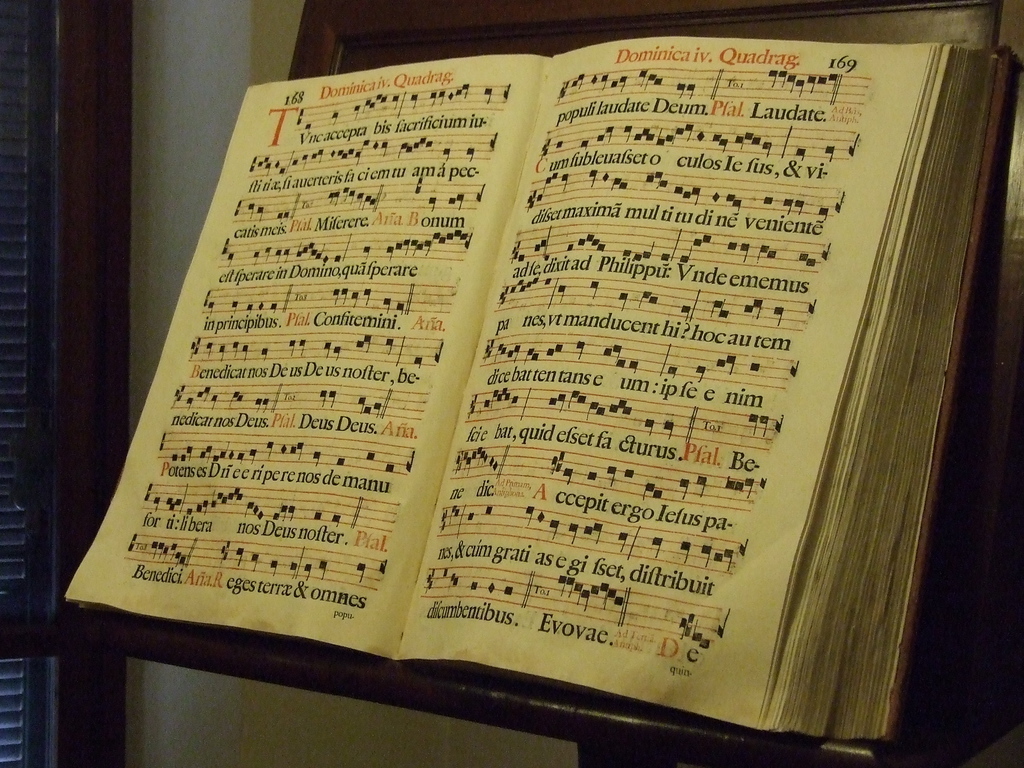 168 Dominica iv. Quadrag.
Tvnc accepta bis sacrificium iu-
stitiæ, si auerteris faciem tuam à pec-
catis meis. Psal. Miserere. Aña. Bonum
est sperare in Domino, quã sperare
in principibus. Psal. Confitemini. Aña.
Benedicat nos Deus Deus noster, be-
nedicat nos Deus. Psal. Deus Deus. Aña.
Potens es Dñe eripere nos de manu
forti: libera nos Deus noster. Psal.
Benedici. Aña. Reges terræ & omnes
popu-
Dominica iv. Quadrag. 169
populi laudate Deum. Psal. Laudate.
Cum subleuasset oculos Iesus, & vi-
disset maximã multitudinẽ venientẽ
ad se, dixit ad Philippũ: Vnde ememus
panes, vt manducent hi? hoc autem
dicebat tentans eum: ipse enim
sciebat, quid esset facturus. Psal. Be-
nedic. Accepit ergo Iesus pa-
nes, & cùm gratias egisset, distribuit
discumbentibus. Evovae. De
quin-